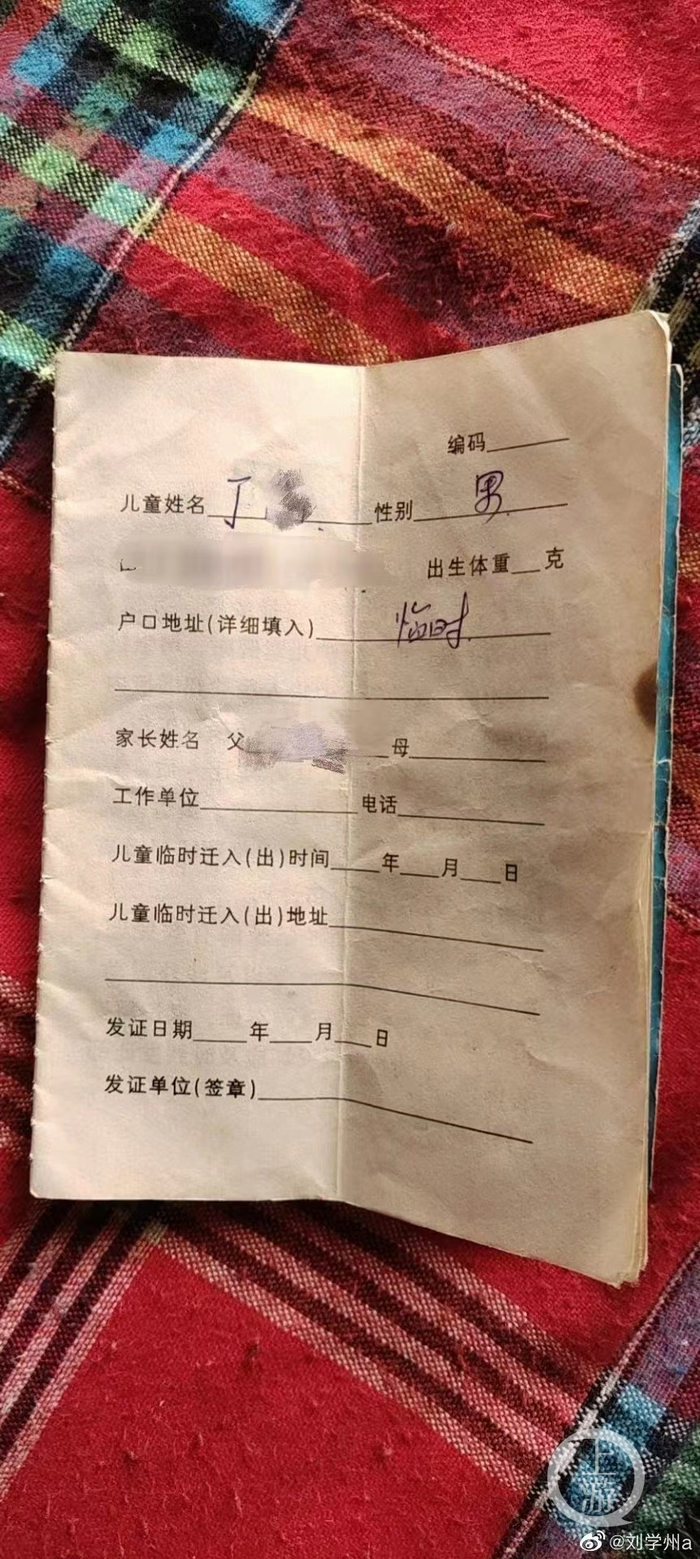 编码
儿童姓名 丁 性别 男
出生体重 克
户口地址(详细填入) 临时
家长姓名 父 母
工作单位 电话
儿童临时迁入(出)时间 年 月 日
儿童临时迁入(出)地址
发证日期 年 月 日
发证单位(签章)
上游
@刘学州a